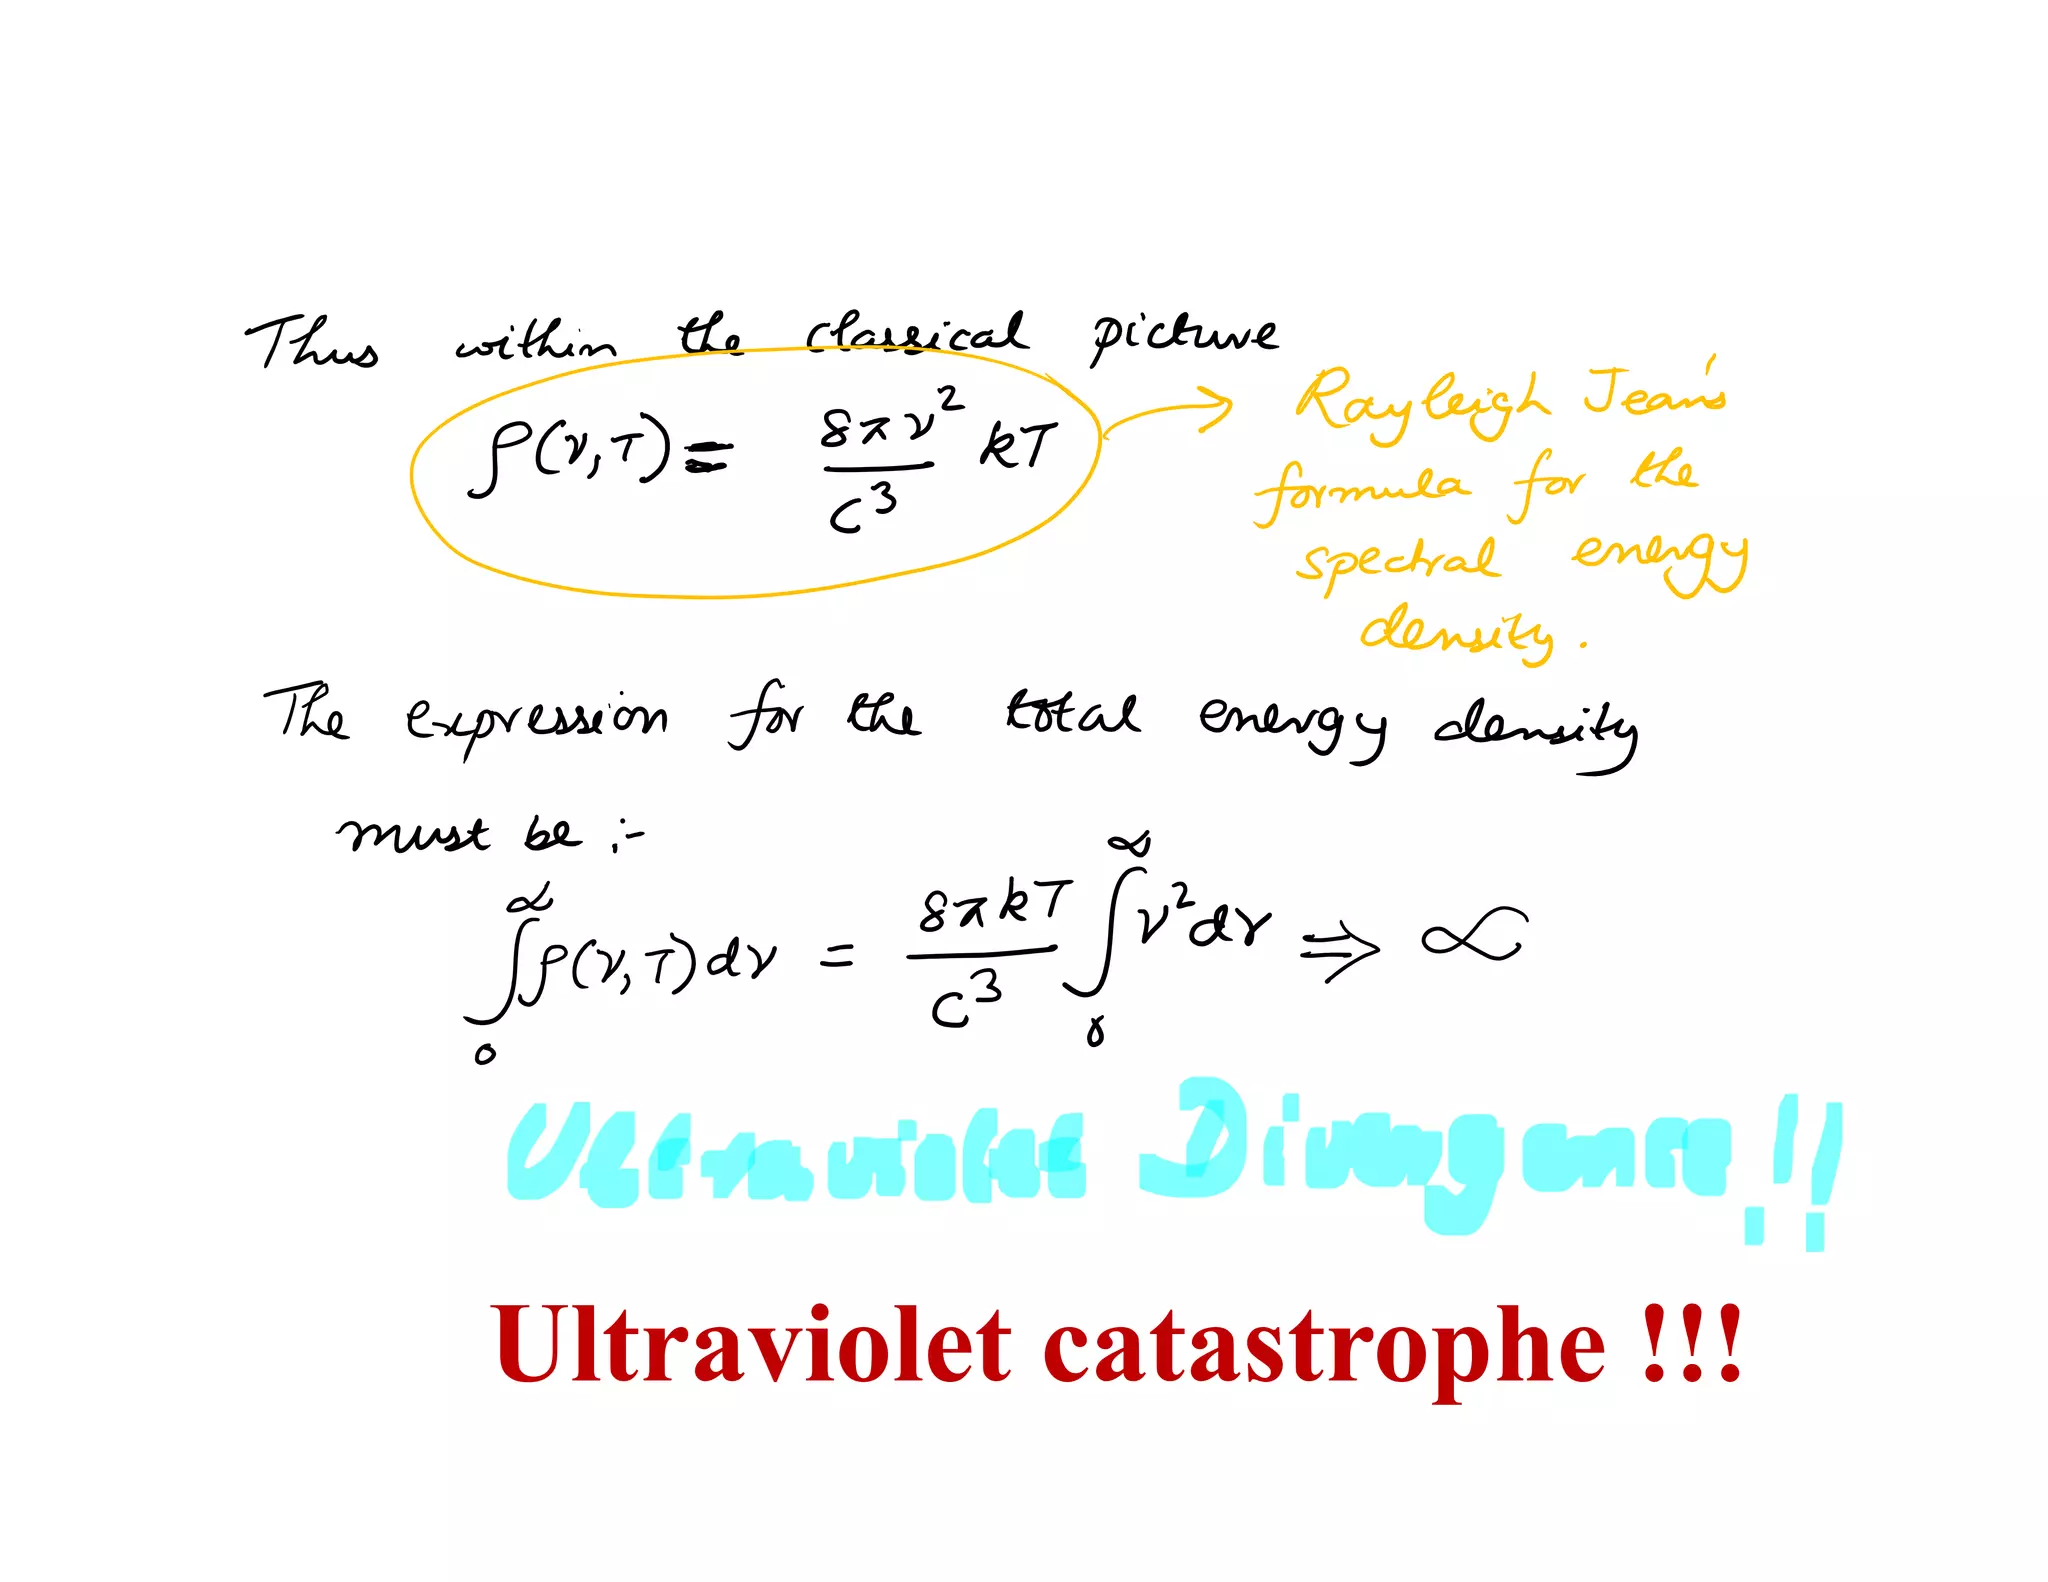 Thus within the classical picture
ρ(ν,T) = 8πν² / c³ kT
Rayleigh Jean's
formula for the
spectral energy
density.
The expression for the total energy density
must be :-
∫₀^∞ ρ(ν,T)dν = 8πkT / c³ ∫₀^∞ ν²dν ⇒ ∞
Ultraviolet Divergence!!
Ultraviolet catastrophe !!!